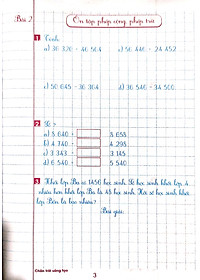 Bài 2
Ôn tập phép cộng, phép trừ
1 Tính
a) 36 320 + 46 504
b) 56 446 - 24 452
c) 50 645 - 36 304
d) 36 546 - 34 500
2 Số ?
a) 5 640 + 5 658
b) 4 740 + 4 295
c) 3 343 + 3 145
d) 6 540 + 5 540
3 Khối lớp Ba có 1456 học sinh. Số học sinh khối lớp 4
nhiều hơn khối lớp Ba là 45 học sinh. Hỏi số học sinh khối
lớp Bốn là bao nhiêu?
Bài giải
Chân trời sáng tạo
3